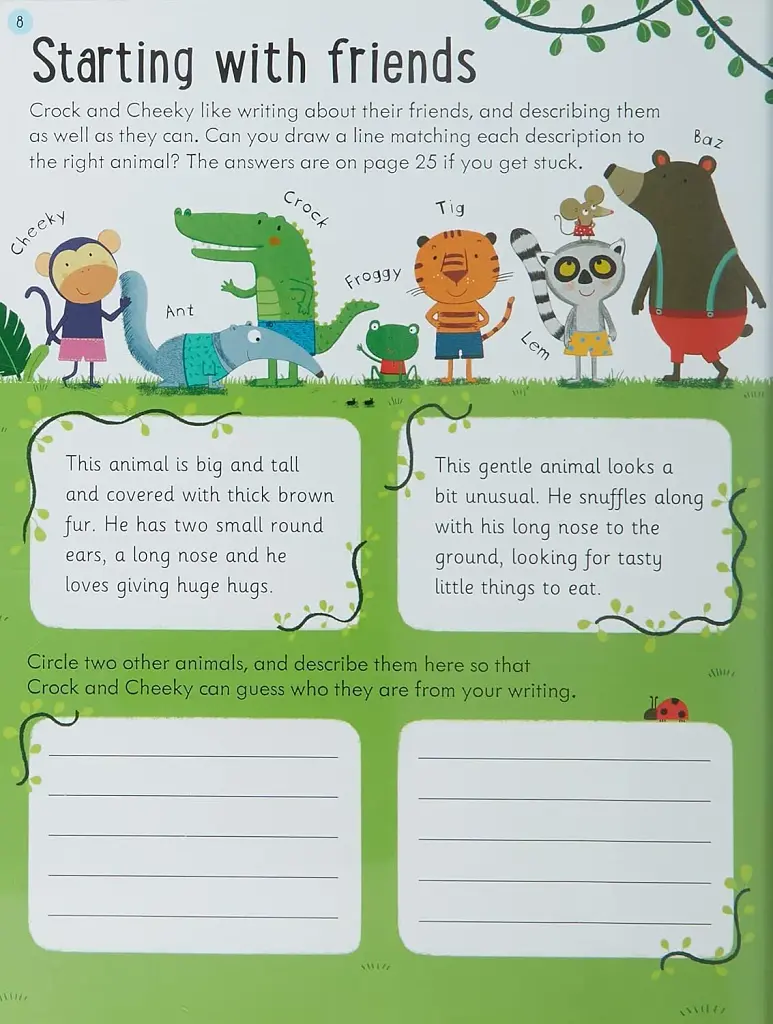 8
Starting with friends
Crock and Cheeky like writing about their friends, and describing them
as well as they can. Can you draw a line matching each description to
the right animal? The answers are on page 25 if you get stuck.
Baz
Cheeky
Crock
Tig
Froggy
Ant
Lem
This animal is big and tall
and covered with thick brown
fur. He has two small round
ears, a long nose and he
loves giving huge hugs.
This gentle animal looks a
bit unusual. He snuffles along
with his long nose to the
ground, looking for tasty
little things to eat.
Circle two other animals, and describe them here so that
Crock and Cheeky can guess who they are from your writing.